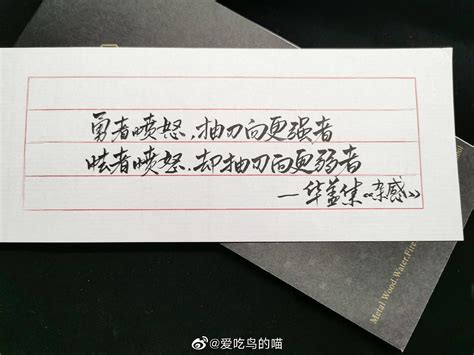 勇者喷怒，抽刃向更强者
怯者喷怒，却抽刃向更弱者
—华盖集《杂感》
Metal Wood.Water.Fire
@爱吃鸟的喵